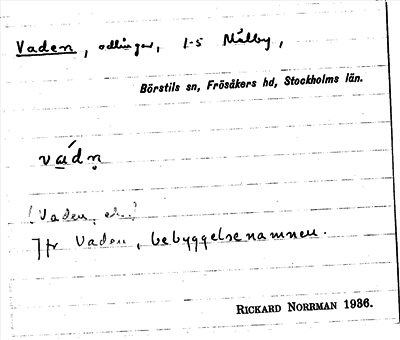 Vaden, odlingar, 1-5 Målby,
Börstils sn, Frösåkers hd, Stockholms län.
vádn̥
(Vaden,
Jfr Vaden, bebyggelsenamnen.
RICKARD NORRMAN 1936.